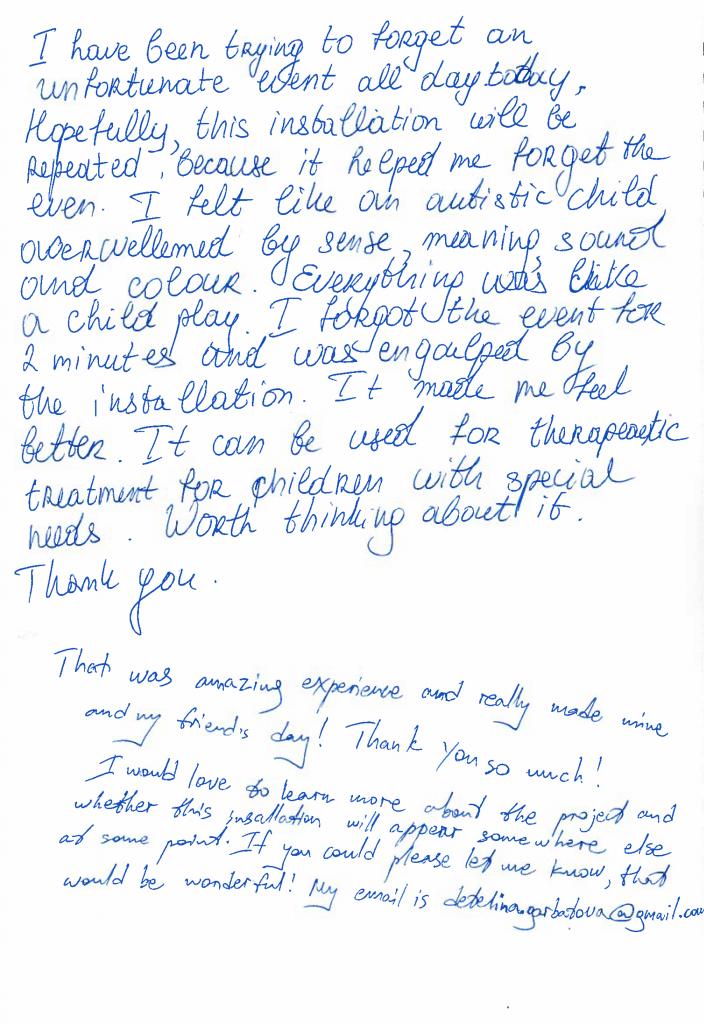 I have been trying to forget an
unfortunate event all day today.
Hopefully, this installation will be
repeated, because it helped me forget the
even. I felt like an autistic child
overwellemed by sense, meaning, sound
and colour. Everything was like
a child play. I forgot the event for
2 minutes and was engoulped by
the installation. It made me feel
better. It can be used for therapeutic
treatment for children with special
needs. Worth thinking about it.
Thank you.
That was amazing experience and really made mine
and my friend's day! Thank you so much!
I would love to learn more about the project and
whether this insallation will appear somewhere else
at some point. If you could please let me know, that
would be wonderful! My email is detelina.garbatova@gmail.com